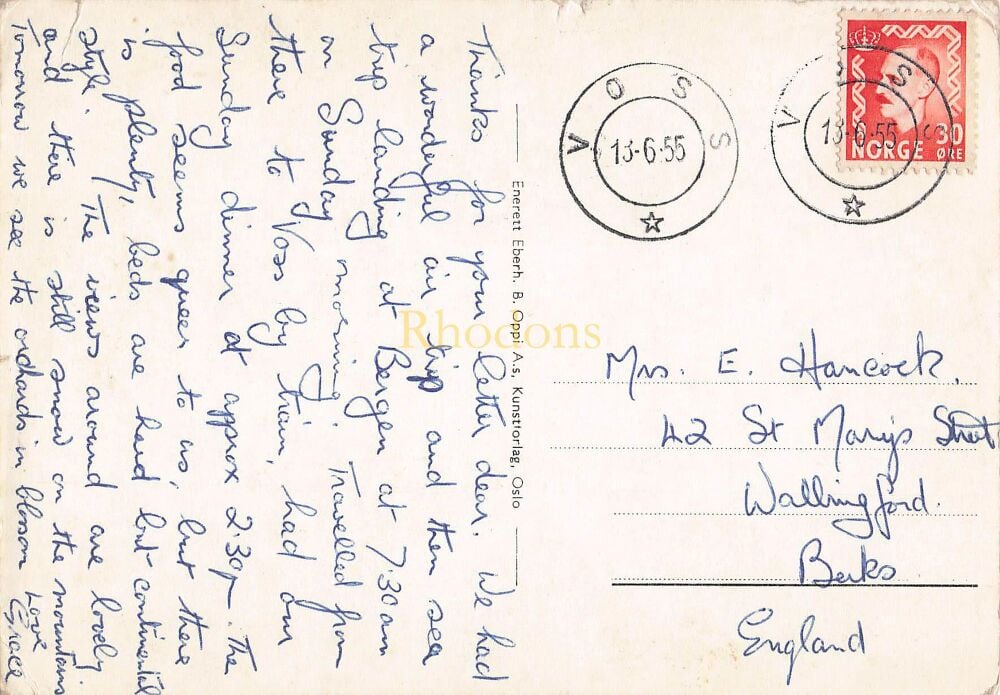 Thanks for your letter dear. We had
a wonderful air trip and then sea
trip landing at Bergen at 7.30am
on Sunday morning. Travelled from
there to Voss by train, had our
Sunday dinner at approx 2.30p. The
food seems queer to us, but there
is plenty, beds are hard but continental
style. The views around are lovely
and there is still snow on the mountains
Tomorrow we see the orchards in blossom
Love
Grace
Enerett Eberh. B. Oppi A.s, Kunstforlag, Oslo
VOSS
13-6-55
VOSS
13-6-55
30
NORGE ØRE
Mrs. E. Hancock.
42 St Mary's Street
Wallingford.
Berks
England
Rhodons